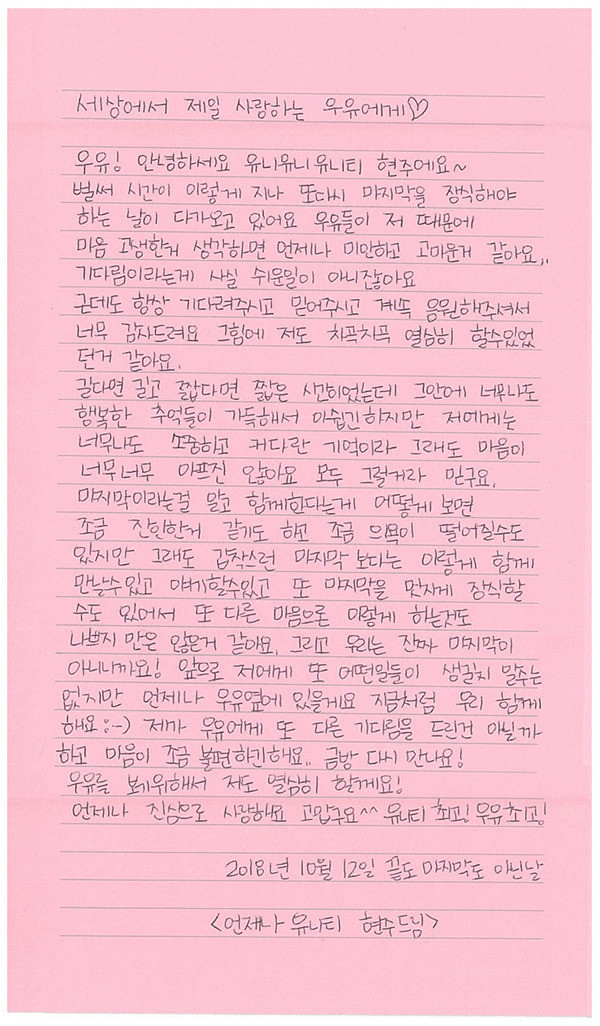 세상에서 제일 사랑하는 우유에게♡
우유! 안녕하세요 유니유니유니티 현주에요~
벌써 시간이 이렇게 지나 또다시 마지막을 장식해야
하는 날이 다가오고 있어요 우유들이 저 때문에
마음 고생한거 생각하면 언제나 미안하고 고마운거 같아요..
기다림이라는게 사실 쉬운일이 아니잖아요
근데도 항상 기다려주시고 믿어주시고 계속 응원해주셔서
너무 감사드려요 그힘에 저도 차곡차곡 열심히 할수있었
던거 같아요.
길다면 길고 짧다면 짧은 시간이었는데 그안에 너무나도
행복한 추억들이 가득해서 아쉽긴하지만 저에게는
너무나도 소중하고 커다란 기억이라 그래도 마음이
너무너무 아프진 않아요 모두 그럴거라 믿구요.
마지막이라는걸 알고 함께한다는게 어떻게 보면
조금 잔인한거 같기도 하고 조금 의욕이 떨어질수도
있지만 그래도 갑작스런 마지막 보다는 이렇게 함께
만날수있고 얘기할수있고 또 마지막을 멋지게 장식할
수도 있어서 또 다른 마음으론 이렇게 하는것도
나쁘지 만은 않은거 같아요. 그리고 우리는 진짜 마지막이
아니니까요! 앞으로 저에게 또 어떤일들이 생길지 알수는
없지만 언제나 우유옆에 있을게요 지금처럼 우리 함께
해요:-) 제가 우유에게 또 다른 기다림을 드린건 아닐까
하고 마음이 조금 불편하긴해요.. 금방 다시 만나요!
우유를 보기위해서 저도 열심히 할게요!
언제나 진심으로 사랑해요 고맙구요^^ 유니티 최고! 우유최고!
2018년 10월 12일 끝도 마지막도 아닌날
<언제나 유니티 현주드림>